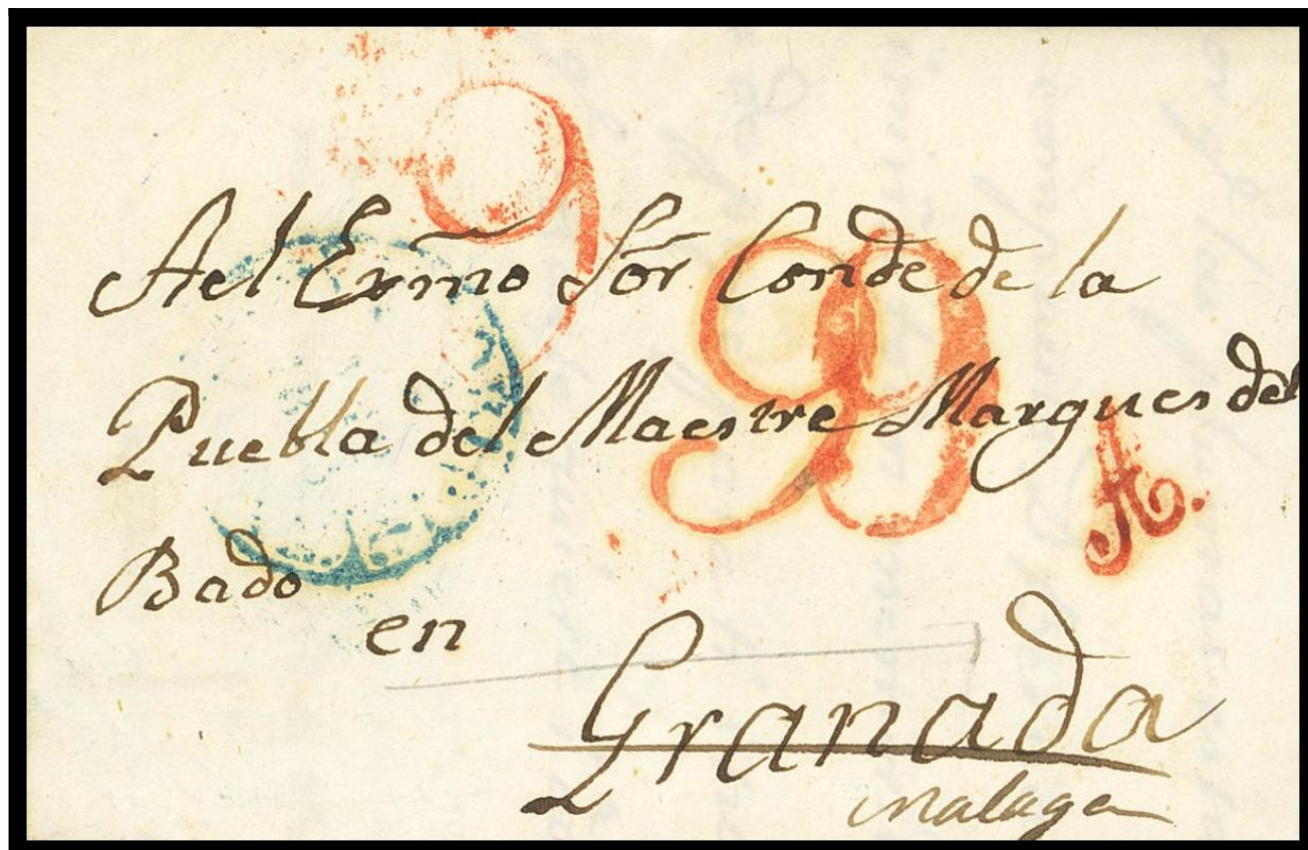 9
Ael Exmo Sor Conde de la
Puebla del Maestre Marques del
A.
Bado
en
Granada
Malaga